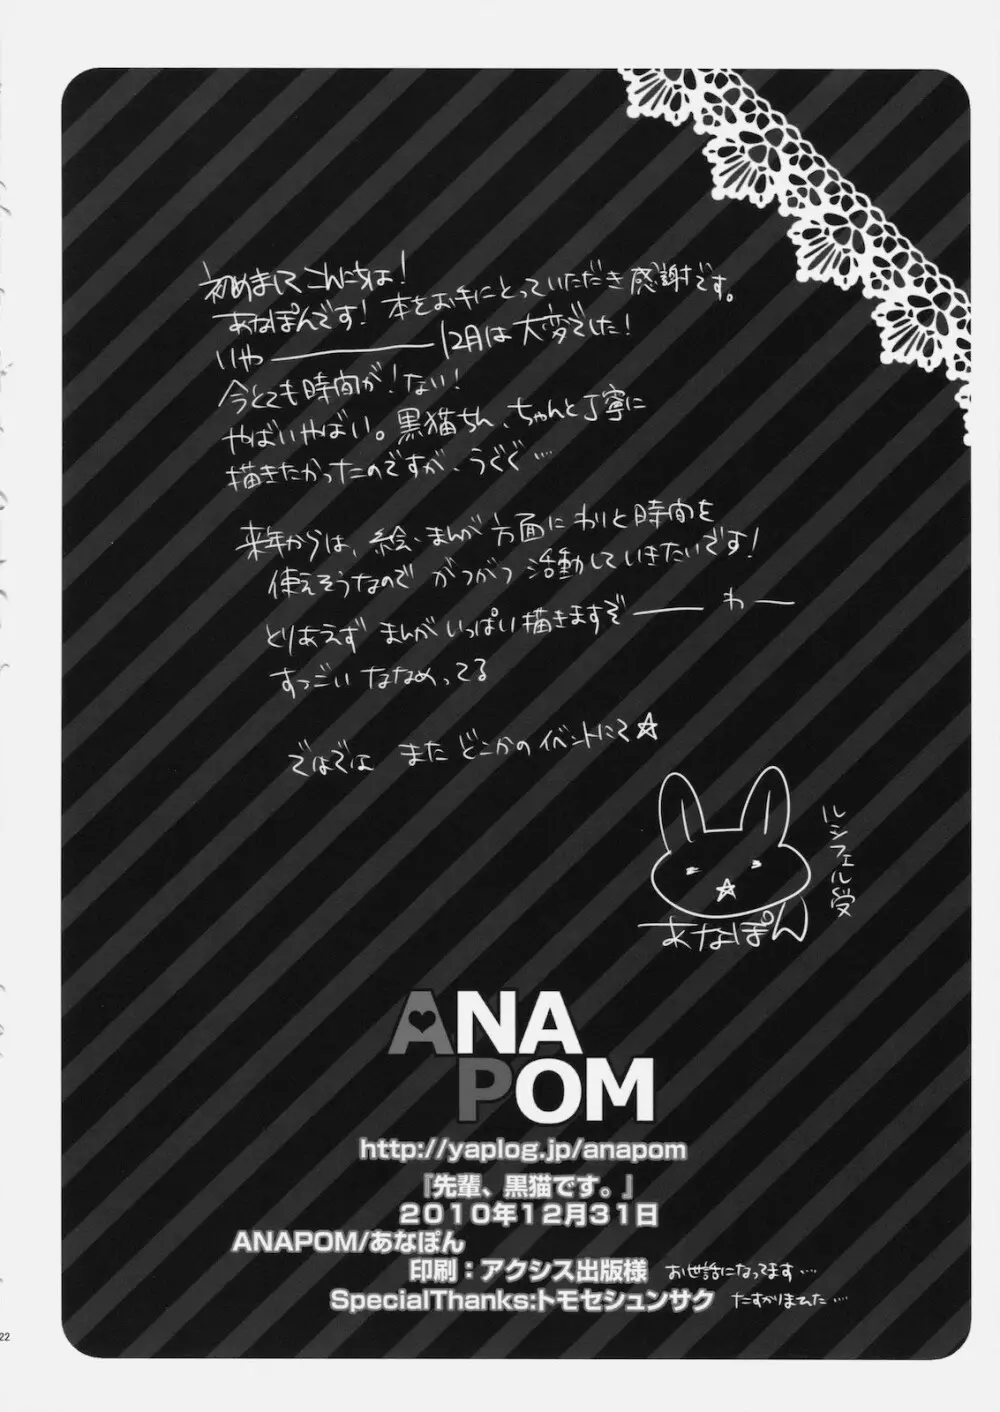 初めまして こんにちは!
あなぽんです! 本をお手にとっていただき感謝です。
いやーーー12月は大変でした!
今とても時間が!ない!
やばいやばい。黒猫ちん、ちゃんと丁寧に
描きたかったのですが、うぐぐ…
来年からは、絵・まんが方面にわりと時間を
使えそうなので がつがつ活動していきたいです!
とりあえず まんがいっぱい描きますぞーー わー
すっごいななめってる
ではでは また どこかのイベントにて☆
ルシフェル受
あなぽん
ANA
POM
http://yaplog.jp/anapom
『先輩、黒猫です。』
2010年12月31日
ANAPOM/あなぽん
印刷:アクシス出版様 お世話になってます…
SpecialThanks:トモセシュンサク たすかりました…
22